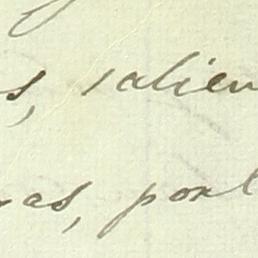 s, salien
as, port